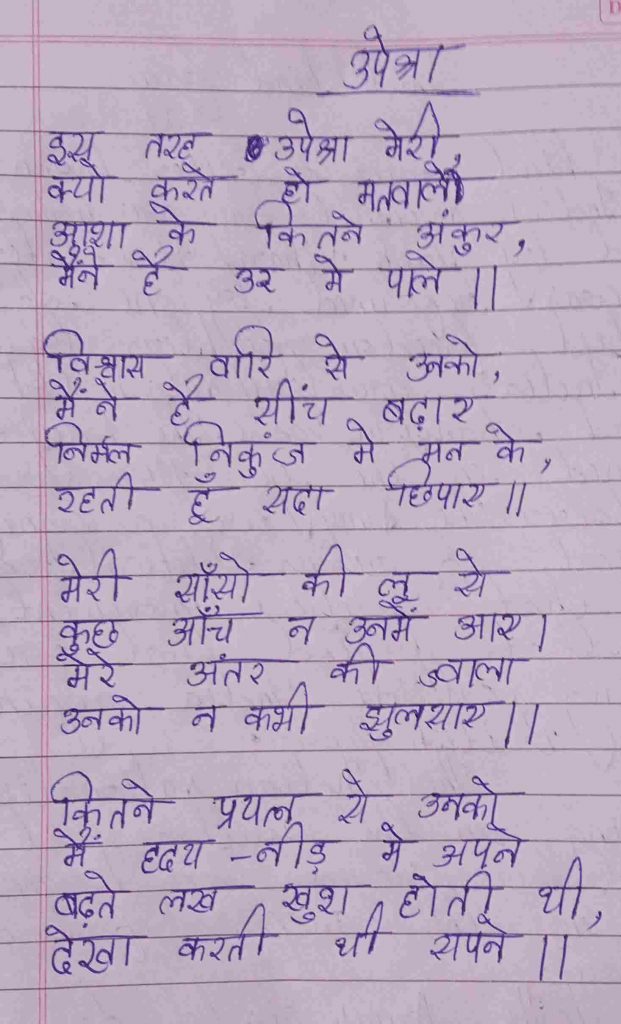 उपेक्षा
इस तरह उपेक्षा मेरी,
क्यो करते हो मतवाले
आशा के कितने अंकुर,
मैंने है उर मे पाले ||
विश्वास वारि से उनको,
मैं ने है सींच बढ़ाए
निर्मल निकुंज मे मन के,
रहती हूँ सदा छिपाए ||
मेरी साँसो की लू से
कुछ आँच न उनमें आए |
मेरे अंतर की ज्वाला
उनको न कभी झुलसाए ||
कितने प्रयत्न से उनको
मैं हृदय - नीड़ मे अपने
बढ़ते लख खुश होती थी,
देखा करती थी सपने ||